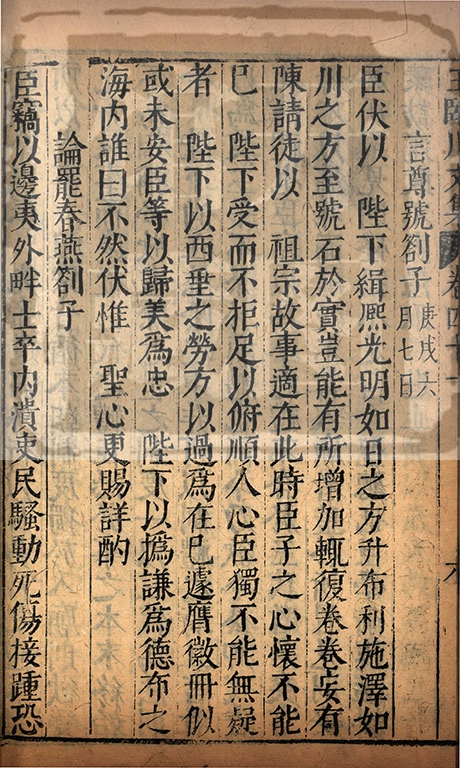 王臨川文集 卷四十 八
言尊號劄子 庚戌六月七日
臣伏以 陛下緝熙光明如日之方升布利施澤如
川之方至號石於實豈能有所增加輒復卷卷妄有
陳請徒以 祖宗故事適在此時臣子之心懷不能
巳 陛下受而不拒足以俯順人心臣獨不能無疑
者 陛下以西垂之勞方以過爲在巳遽膺徽冊似
或未安臣等以歸美爲忠 陛下以撝謙爲德布之
海内誰曰不然伏惟 聖心更賜詳酌
論罷春燕劄子
臣竊以邊夷外畔士卒内潰吏民騷動死傷接踵恐